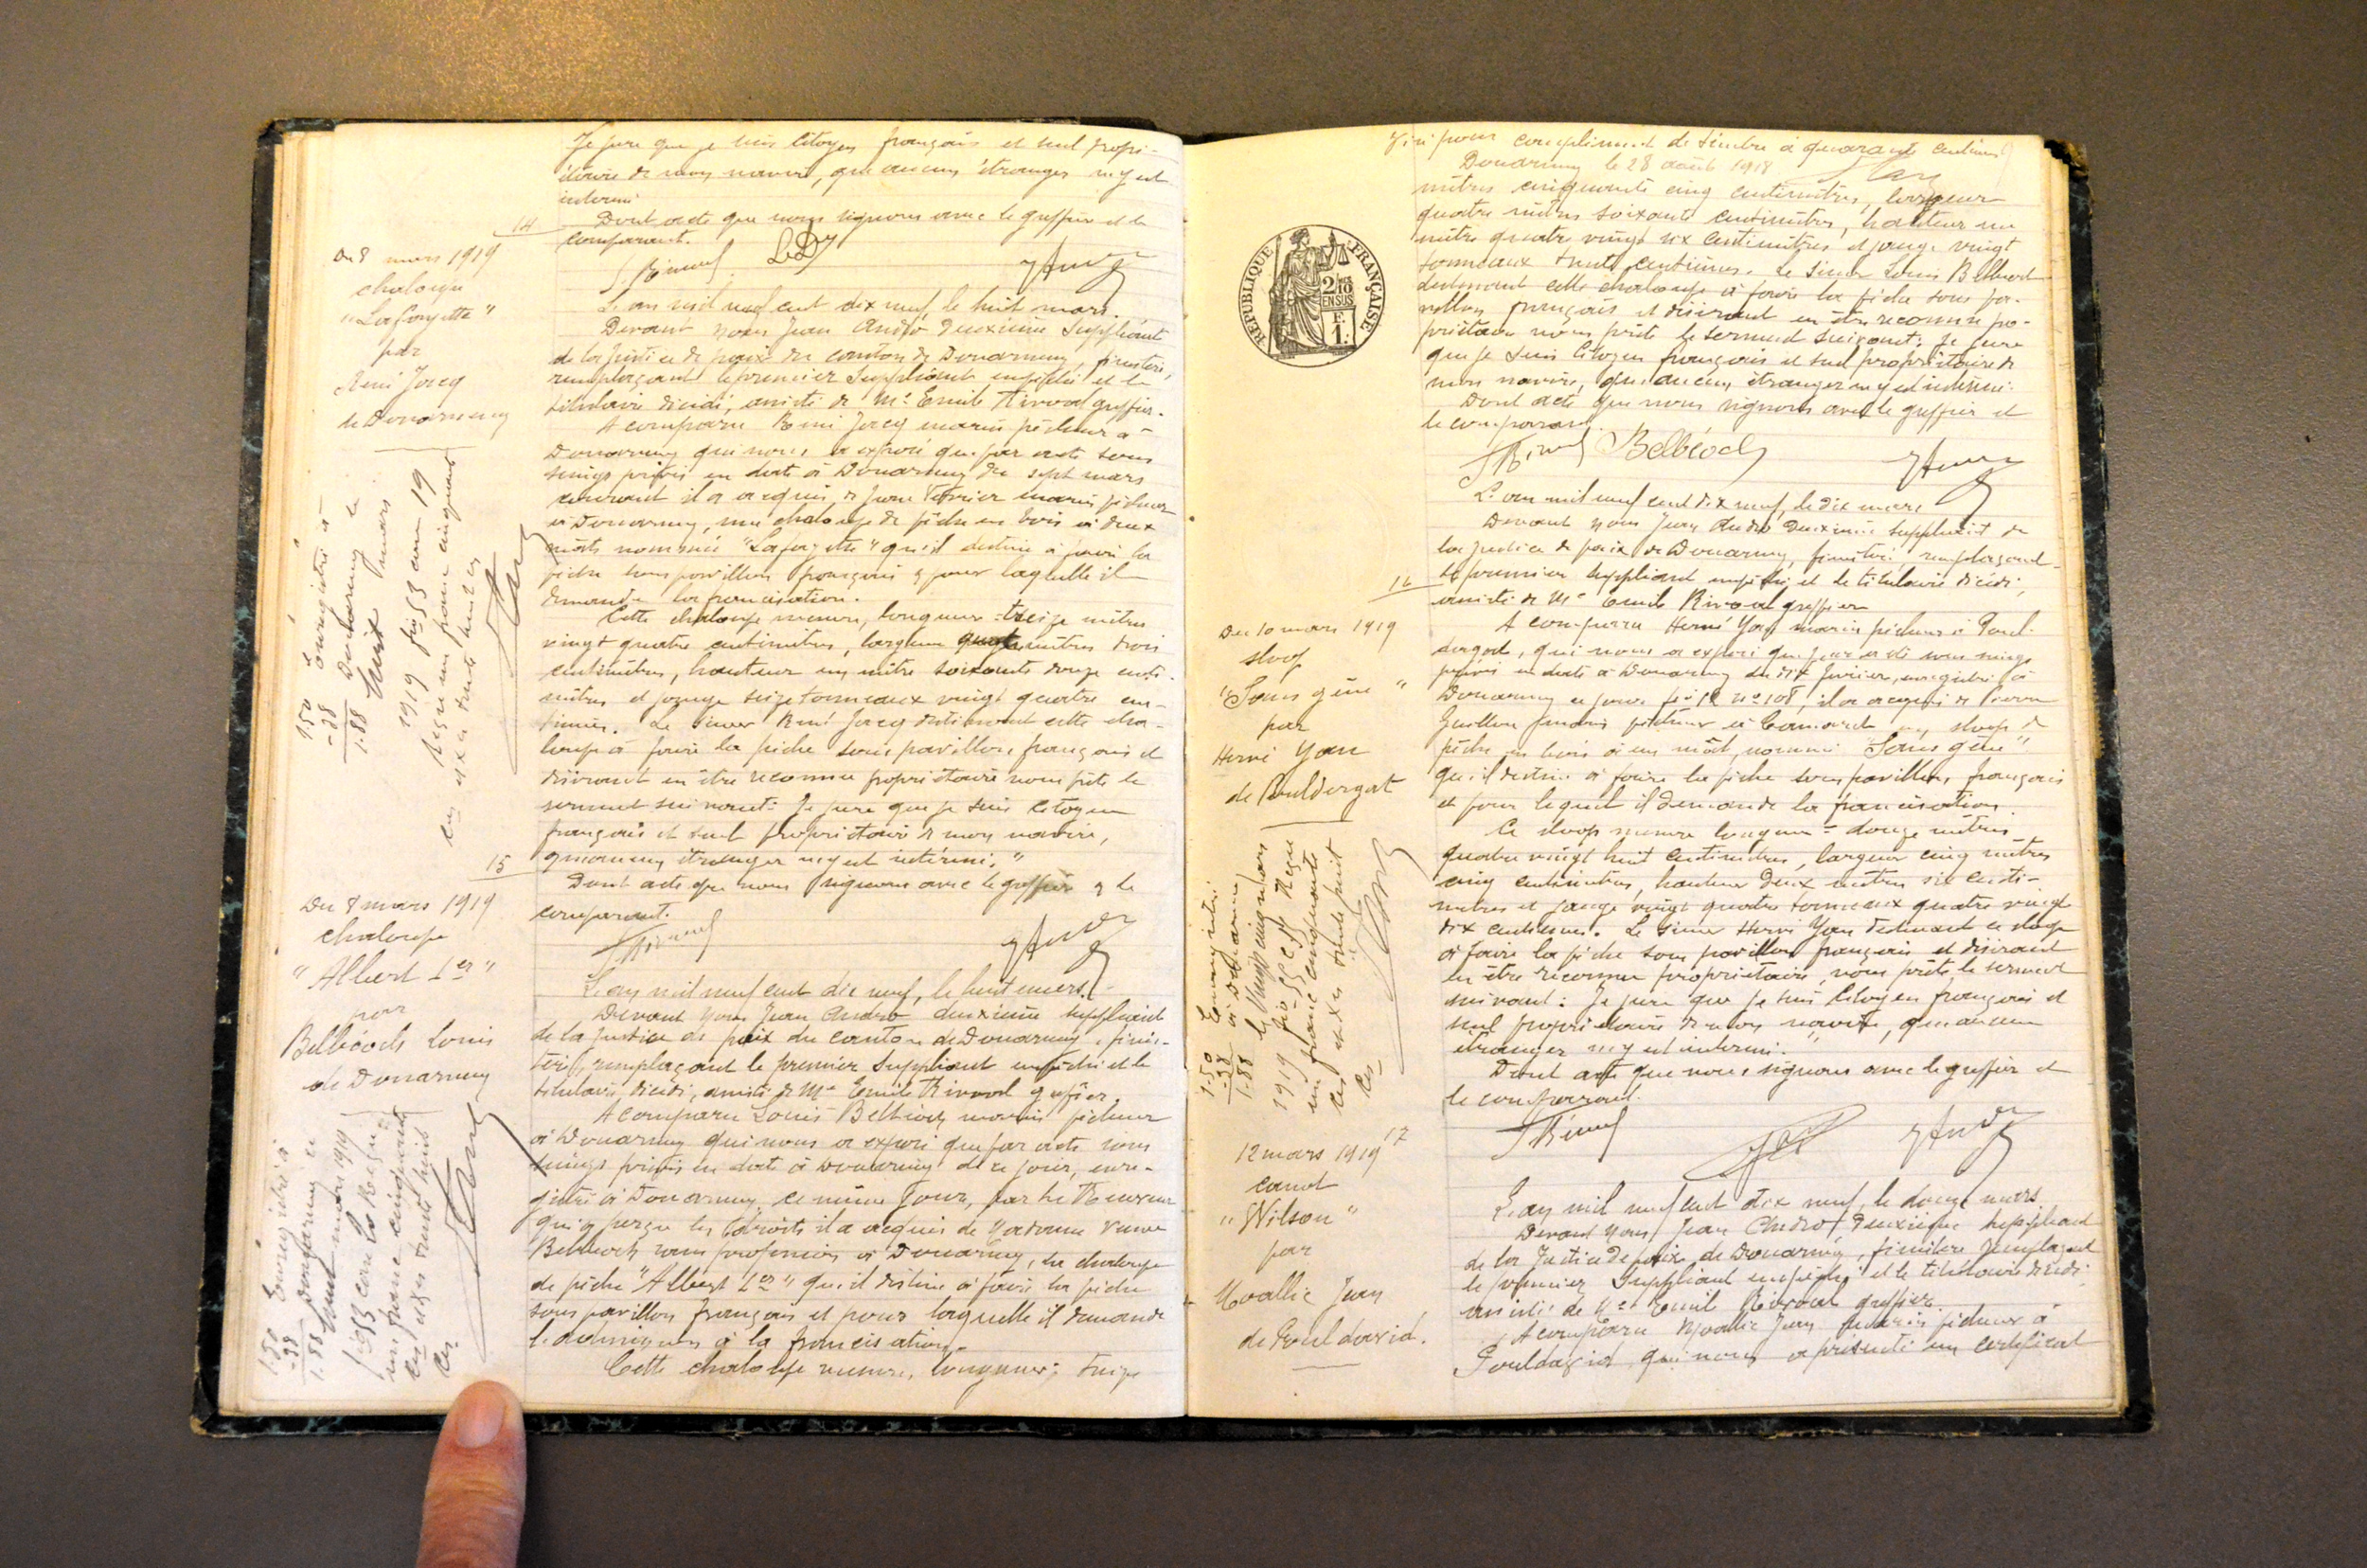 Je jure que je suis Citoyen français et seul propri-
étaire de mon navire, que aucun étranger n'y est
intéressé
Dont acte que nous signons avec le greffier et le
comparant.
14
Du 8 mars 1919
chaloupe
"Lafayette"
par
René Jocq
de Douarnenez
1.50
-38
1.88
Enregistré à
Douarnenez le
huit mars
1919 fo 53 case 19
Reçu un franc cinquante
ces et xes trente huit ces
L'an mil neuf cent dix neuf, le huit mars.
Devant nous Jean Andro deuxième Suppléant
de la justice de paix du canton de Douarnenez, finistère,
remplaçant le premier Suppléant empêché et le
titulaire décédé, assisté de Me Emile Rivoal greffier.
A comparu René Jocq marin pêcheur à
Douarnenez qui nous a exposé que par acte sous
seings privés en date à Douarnenez du sept mars
courant il a acquis de marin pêcheur
à Douarnenez, une chaloupe de pêche en bois à deux
mâts nommée "Lafayette" qu'il destine à faire la
pêche sous pavillon français & pour laquelle il
demande la francisation.
Cette chaloupe mesure, longueur: treize mètres
vingt quatre centimètres, largeur quatre mètres trois
centimètres, hauteur un mètre soixante douze centi-
mètres et jauge seize tonneaux vingt quatre cen-
tièmes. Le sieur René Jocq destinant cette cha-
loupe à faire la pêche sous pavillon français et
désirant en être reconnu propriétaire nous prête le
serment suivant: Je jure que je suis Citoyen
français et seul propriétaire de mon navire,
qu'aucun étranger n'y est intéressé."
Dont acte que nous signons avec le greffier & le
comparant.
15
Du 8 mars 1919
chaloupe
"Albert 1er"
par
Belbéoch Louis
de Douarnenez
1.50
-38
1.88
Enregistré à
Douarnenez le
huit mars 1919
fo 53 case 20 Reçu
un franc cinquante
ces et xes trente huit
ces
L'an mil neuf cent dix neuf, le huit mars.
Devant nous Jean Andro deuxième suppléant
de la justice de paix du canton de Douarnenez, finis-
tère, remplaçant le premier Suppléant empêché et le
titulaire décédé, assisté de Me Emile Rivoal greffier
A comparu Louis Belbéoch marin pêcheur
à Douarnenez qui nous a exposé que par acte sous
seings privés en date à Douarnenez de ce jour, enre-
gistré à Douarnenez, ce même jour, par le Receveur
qui a perçu les droits il a acquis de Madame Veuve
Belbéoch sans profession à Douarnenez, la chaloupe
de pêche "Albert 1er" qu'il destine à faire la pêche
sous pavillon français et pour laquelle il demande
à la francisation.
Cette chaloupe mesure, longueur: treize
Visé pour complément de timbre à quarante centimes
Douarnenez le 28 août 1918
RÉPUBLIQUE FRANÇAISE
2/10 EN SUS
F. 1.
mètres cinquante cinq centimètres, largeur
quatre mètres soixante centimètres, hauteur un
mètre quatre vingt six centimètres et jauge vingt
tonneaux trente centièmes. Le sieur Louis Belbéoch
destinant cette chaloupe à faire la pêche sous pa-
villon français et désirant en être reconnu pro-
priétaire nous prête le serment suivant: Je jure
que je suis Citoyen français et seul propriétaire de
mon navire, qu'aucun étranger n'y est intéressé.
Dont acte que nous signons avec le greffier et
le comparant.
Belbéoch
16
Du 10 mars 1919
sloop
"Sans gêne"
par
Hervé Yan
de Pouldergat
1.50
-38
1.88
Enregistré
à Douarnenez
le vingt cinq mars
1919 Reçu
un franc cinquante
ces et xes trente huit
ces
L'an mil neuf cent dix neuf, le dix mars
Devant nous Jean Andro deuxième suppléant de
la justice de paix de Douarnenez, finistère, remplaçant
le premier suppléant empêché et le titulaire décédé,
assisté de Me Emile Rivoal greffier
A comparu Hervé Yan marin pêcheur à Poul-
dergat, qui nous a exposé que par acte sous seings
privés en date à Douarnenez du dix février, enregistré à
Douarnenez ce jour no 108, il a acquis de Pierre
marin pêcheur à Camaret un sloop de
pêche en bois à un mât, nommé "Sans gêne"
qu'il destine à faire la pêche sous pavillon français
et pour lequel il demande la francisation.
Ce sloop mesure longueur: douze mètres
quatre vingt huit centimètres, largeur cinq mètres
cinq centimètres, hauteur deux mètres six centi-
mètres et jauge vingt quatre tonneaux quatre vingt
dix centièmes. Le sieur Hervé Yan destinant ce sloop
à faire la pêche sous pavillon français et désirant
en être reconnu propriétaire, nous prête le serment
suivant: Je jure que je suis Citoyen français et
seul propriétaire de mon navire, qu'aucun
étranger n'y est intéressé."
Dont acte que nous signons avec le greffier et
le comparant.
17
12 mars 1919
canot
"Wilson"
par
Moallic Jean
de Pouldavid.
L'an mil neuf cent dix neuf, le douze mars
Devant nous Jean Andro deuxième suppléant
de la Justice de paix de Douarnenez, finistère remplaçant
le premier Suppléant empêché et le titulaire décédé
assisté de Me Emile Rivoal greffier
A comparu Moallic Jean marin pêcheur à
Pouldavid qui nous a présenté un certificat